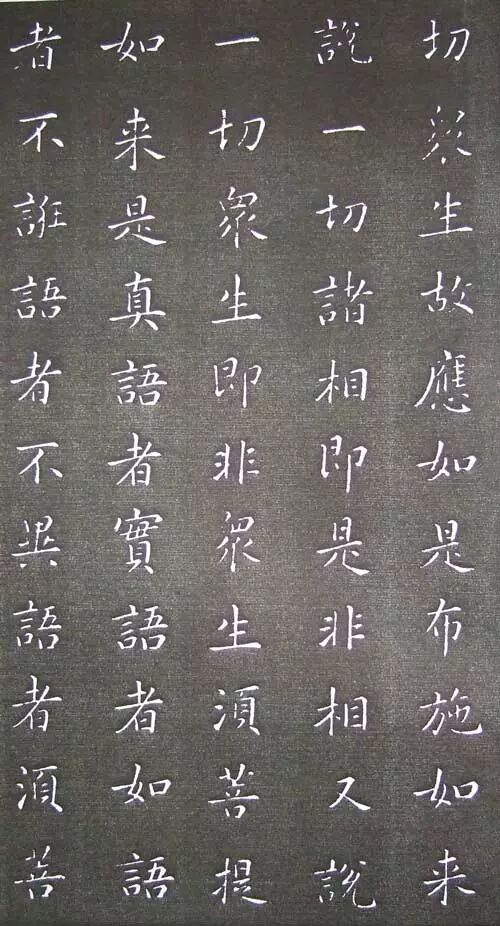 切眾生故應如是布施如来
說一切諸相即是非相又說
一切眾生即非眾生須菩提
如来是真語者實語者如語
者不誑語者不異語者須菩